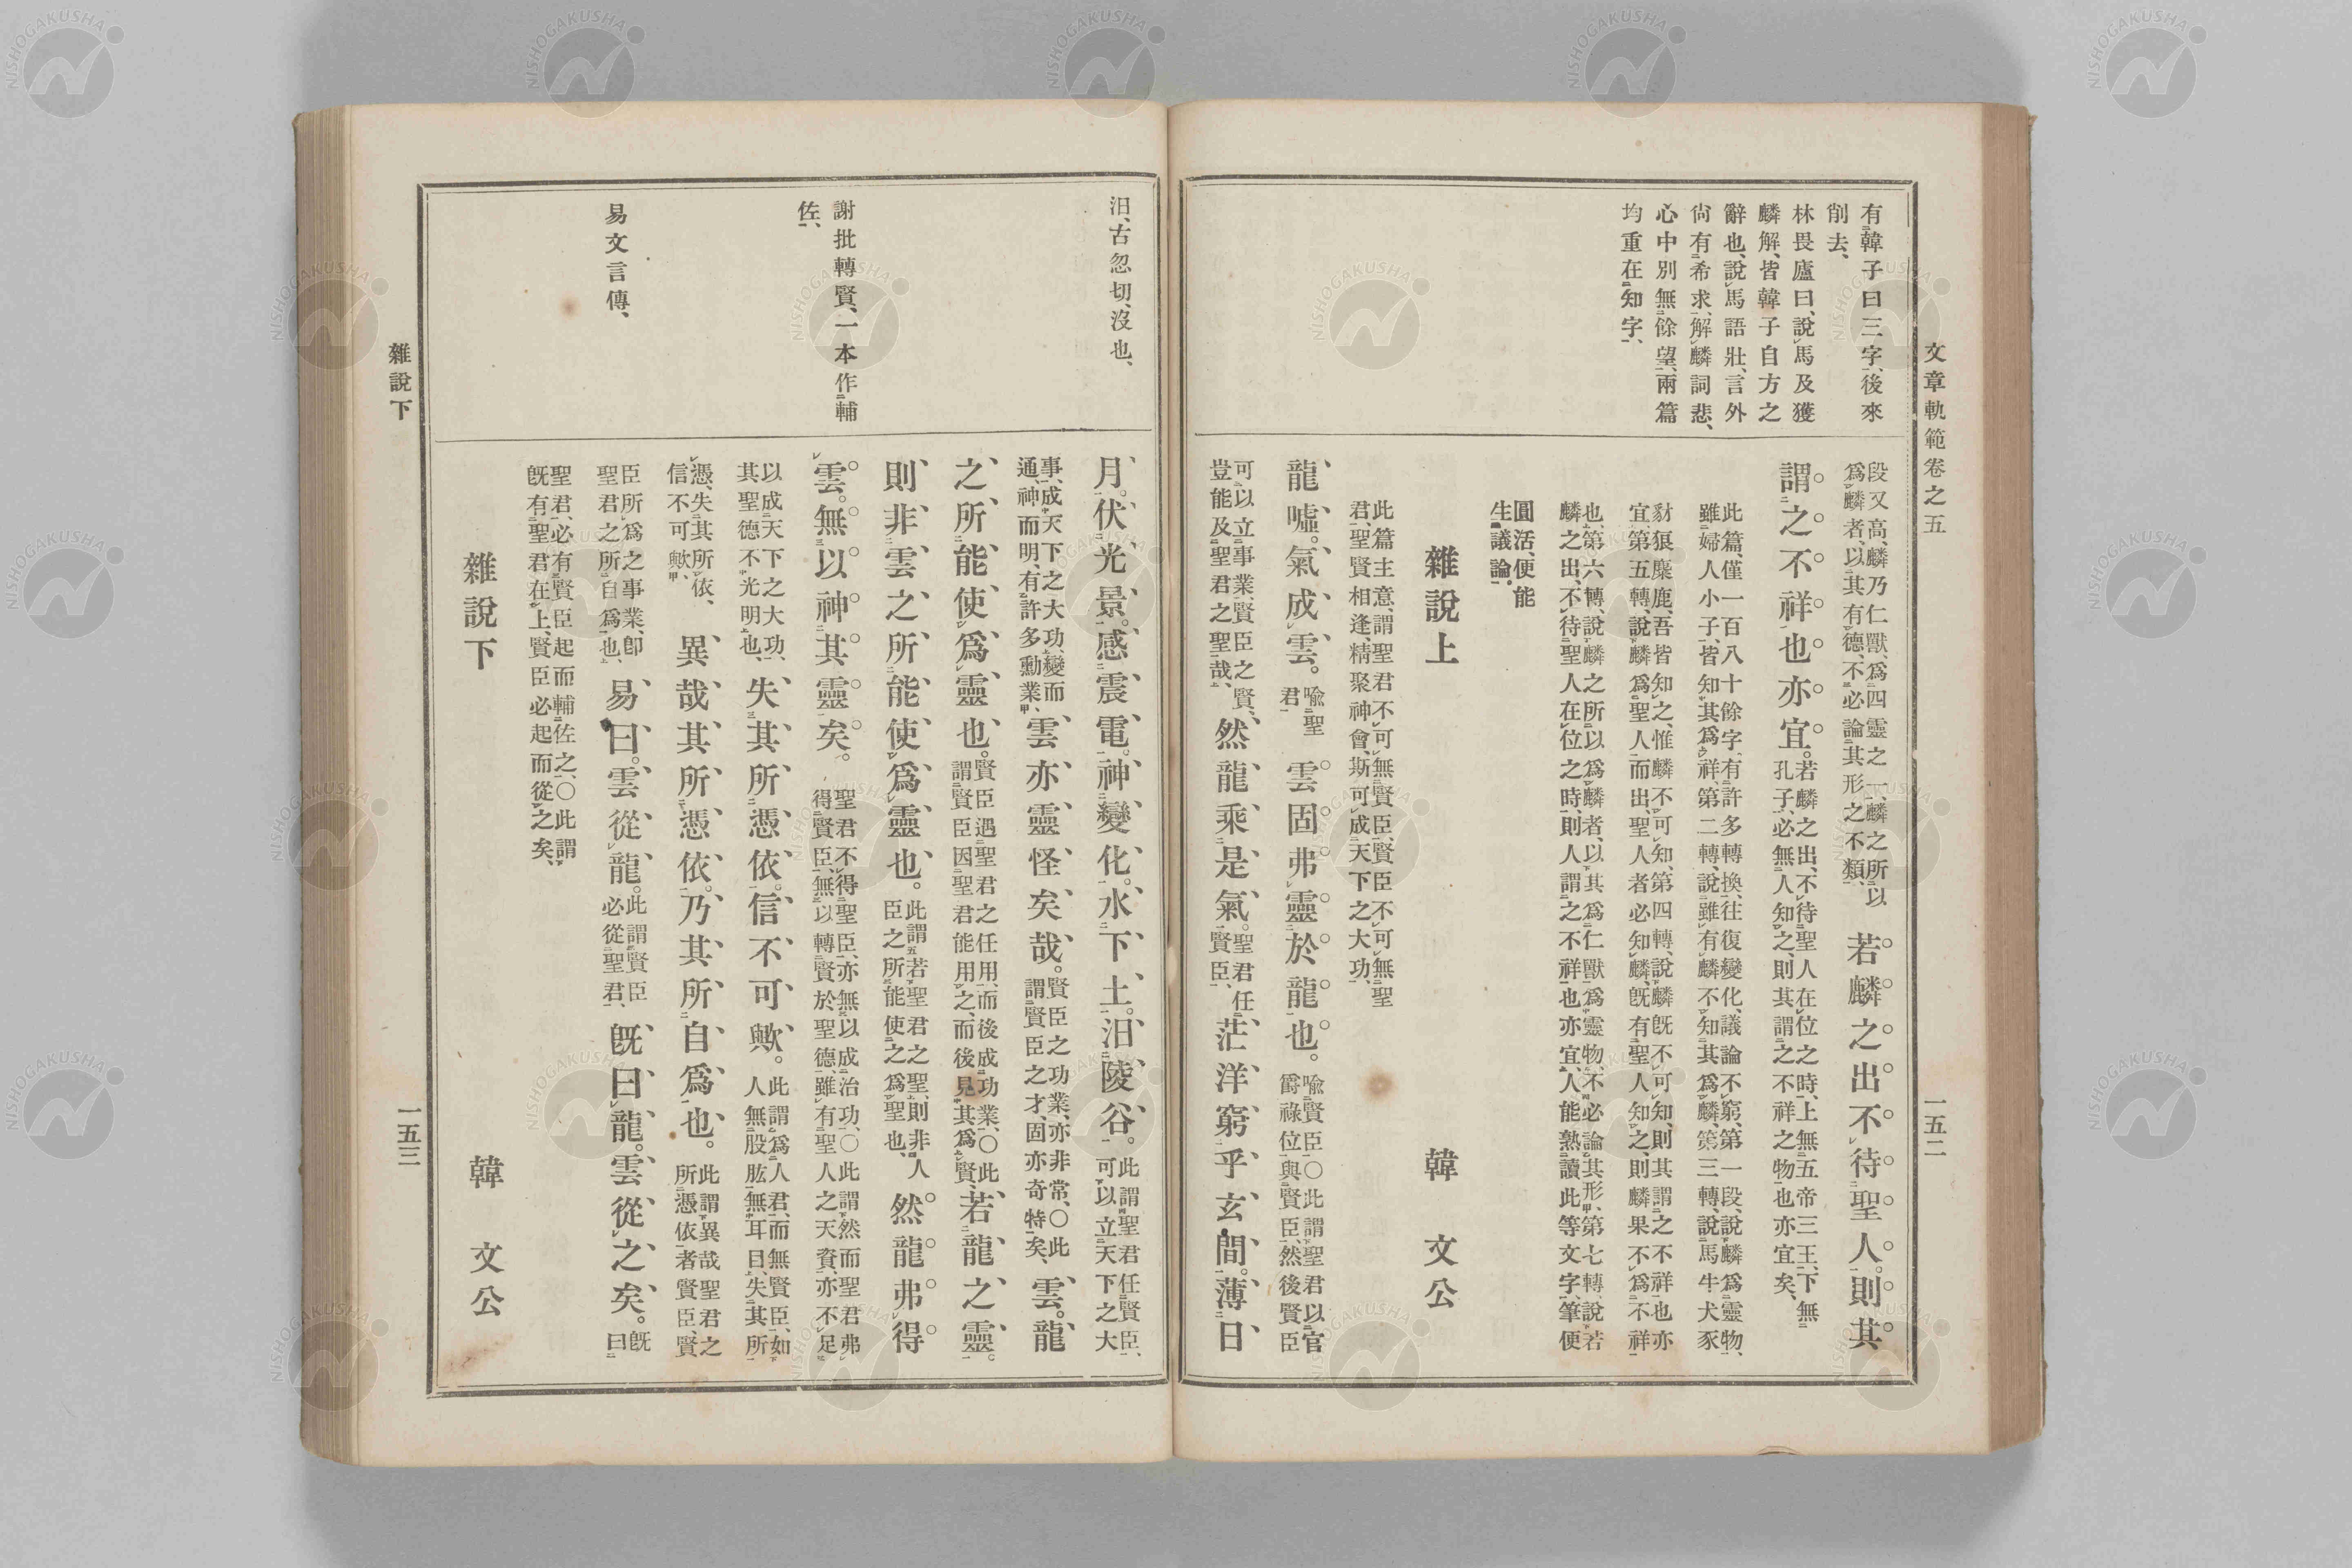 文章軌範卷之五
一五二
有韓子曰三字、後來
削去、
林畏廬曰、說馬及獲
麟解、皆韓子自方之
辭也、說馬語壯、言外
尙有希求、解麟詞悲、
心中別無餘望、兩篇
均重在知字、
段又高、麟乃仁獸、爲四靈之一、麟之所以
爲麟者、以其有德、不必論其形之不類、
若麟之出不待聖人。則其
謂之不祥也亦宜。
若麟之出、不待聖人在位之時、上無五帝三王、下無
孔子、必無人知之、則其謂之不祥之物也亦宜矣、
此篇、僅一百八十餘字、有許多轉換、往復變化、議論不窮、第一段、說麟爲靈物、
雖婦人小子、皆知其爲祥、第二轉、說雖有麟不知其爲麟、第三轉、說馬牛犬豕
豺狼麋鹿、吾皆知之、惟麟不可知、第四轉、說麟旣不可知、則其謂之不祥也亦
宜、第五轉、說麟爲聖人而出、聖人者必知麟、旣有聖人知之、則麟果不爲不祥
也、第六轉、說麟之所以爲麟者、以其爲仁獸、爲靈物、不必論其形、第七轉、說若
麟之出、不待聖人在位之時、則人謂之不祥也亦宜、人能熟讀此等文字、筆便
圓活、便能
生議論。
雜說上 韓文公
此篇主意、謂聖君不可無賢臣、賢臣不可無聖
君、聖賢相逢、精聚神會、斯可成天下之大功、
龍嘘氣成雲。
喩聖
君
雲固弗靈於龍也。
喩賢臣、○此謂聖君以官
爵祿位、與賢臣、然後賢臣
可以立事業、賢臣之賢、
豈能及聖君之聖哉、
然龍乘是氣。
聖君任
賢臣、
茫洋窮乎玄間。薄日
汨、古忽切、沒也、
謝批轉賢、一本作輔
佐、
易文言傳、
月。伏光景。感震電。神變化。水下土。汨陵谷。
此謂聖君任賢臣、
可以立天下之大
事、成天下之大功、變而
通、神而明、有許多勳業、
雲亦靈怪矣哉。
賢臣之功業、亦非常、○此
謂賢臣之才、固亦奇特矣、
雲。龍
之所能使爲靈也。
賢臣遇聖君之任用、而後成功業、○此
謂賢臣因聖君能用之、而後見其爲賢、
若龍之靈。
則非雲之所能使爲靈也。
此謂若聖君之聖、則非人
臣之所能使之爲聖也、
然龍弗得
雲。無以神其靈矣。
聖君不得聖臣、亦無以成治功、○此謂然而聖君弗
得賢臣、無以轉賢於聖德、雖有聖人之天資、亦不足
以成天下之大功、
其聖德不光明也、
失其所憑依。信不可歟。
此謂爲人君、而無賢臣、如
人無股肱、無耳目、失其所
憑、失其所依、
信不可歟、
異哉其所憑依。乃其所自爲也。
此謂異哉聖君之
所憑依者賢臣、賢
臣所爲之事業、卽
聖君之所自爲也、
易曰。雲從龍。
此謂賢臣
必從聖君、
旣曰龍。雲從之矣。
旣
曰
聖君、必有賢臣起而輔佐之、○此謂
旣有聖君在上、賢臣必起而從之矣、
雜說下 韓文公
雜說下
一五三